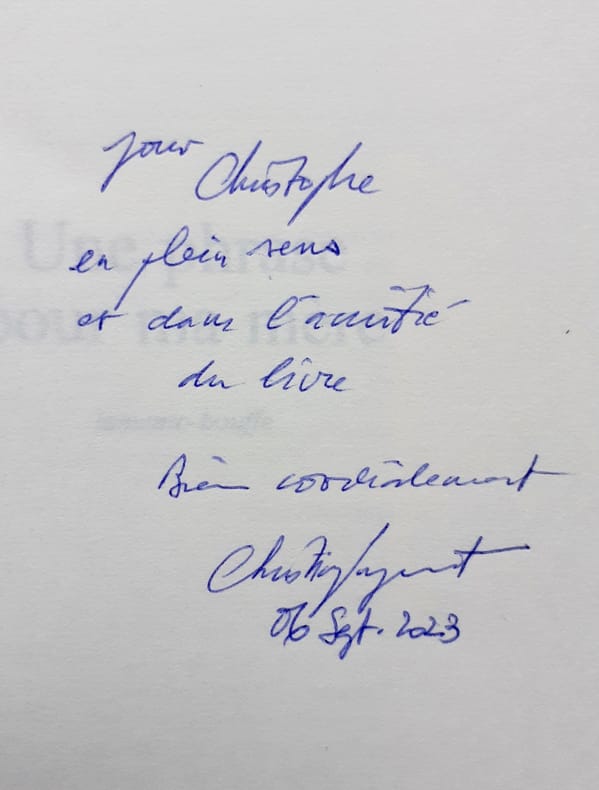 pour Christophe
en plein sens
et dans l'amitié
du livre
Bien cordialement
06 Sept. 2023
Une phrase
pour ma mère